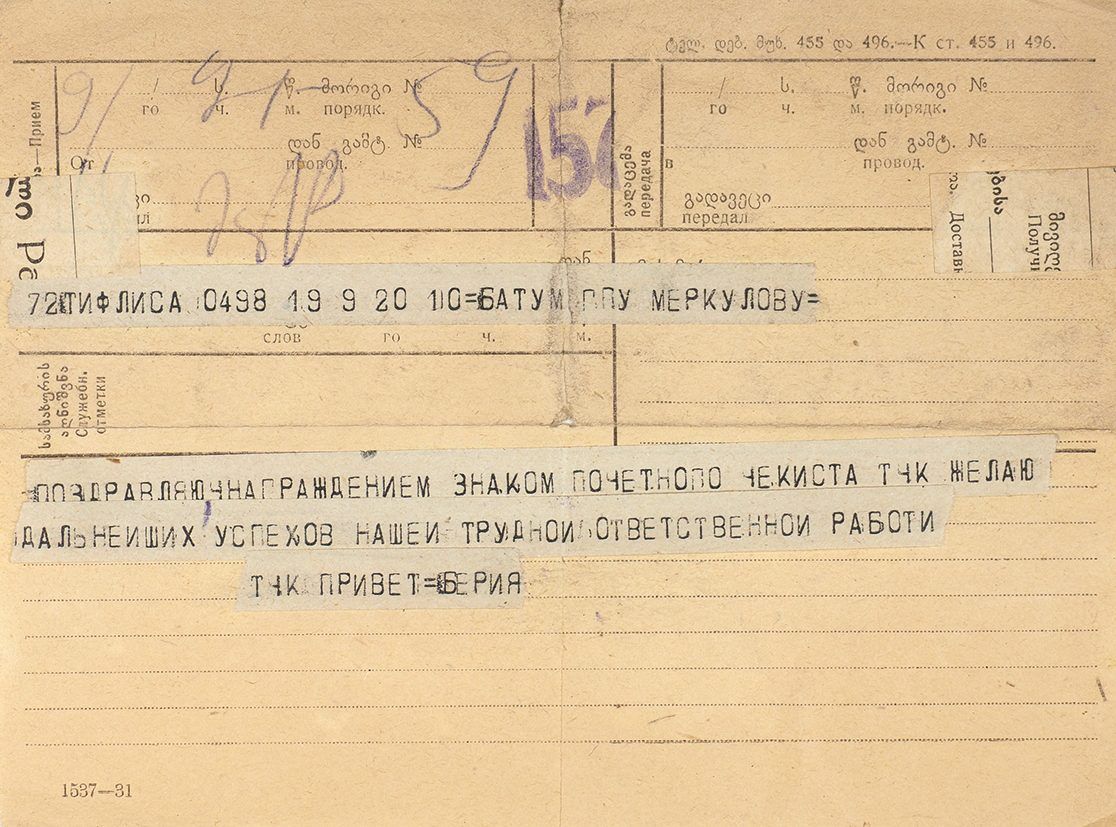 ტელ. დებ. მუხ. 455 და 496.—К ст. 455 и 496.
/ ს. წ. მორიგი №
го ч. м. порядк.
დან გამტ. №
От провод.
Прием
157
გადაცემა
передача
/ ს. წ. მორიგი №
го ч. м. порядк.
დან გამტ. №
в провод.
გადავეცი
передал
59
Доставь
მივიღე
Получ
72 ТИФЛИСА 0498 19 9 20 10=БАТУМ ГПУ МЕРКУЛОВУ=
слов го ч. м.
სამსახურის
აღნიშვნა
Служебн.
отметки
=ПОЗДРАВЛЯЮ НАГРАЖДЕНИЕМ ЗНАКОМ ПОЧЕТНОГО ЧЕКИСТА ТЧК ЖЕЛАЮ
ДАЛЬНЕИШИХ УСПЕХОВ НАШЕИ ТРУДНОИ ОТВЕТСТВЕННОИ РАБОТИ
ТЧК ПРИВЕТ=БЕРИЯ
1537—31